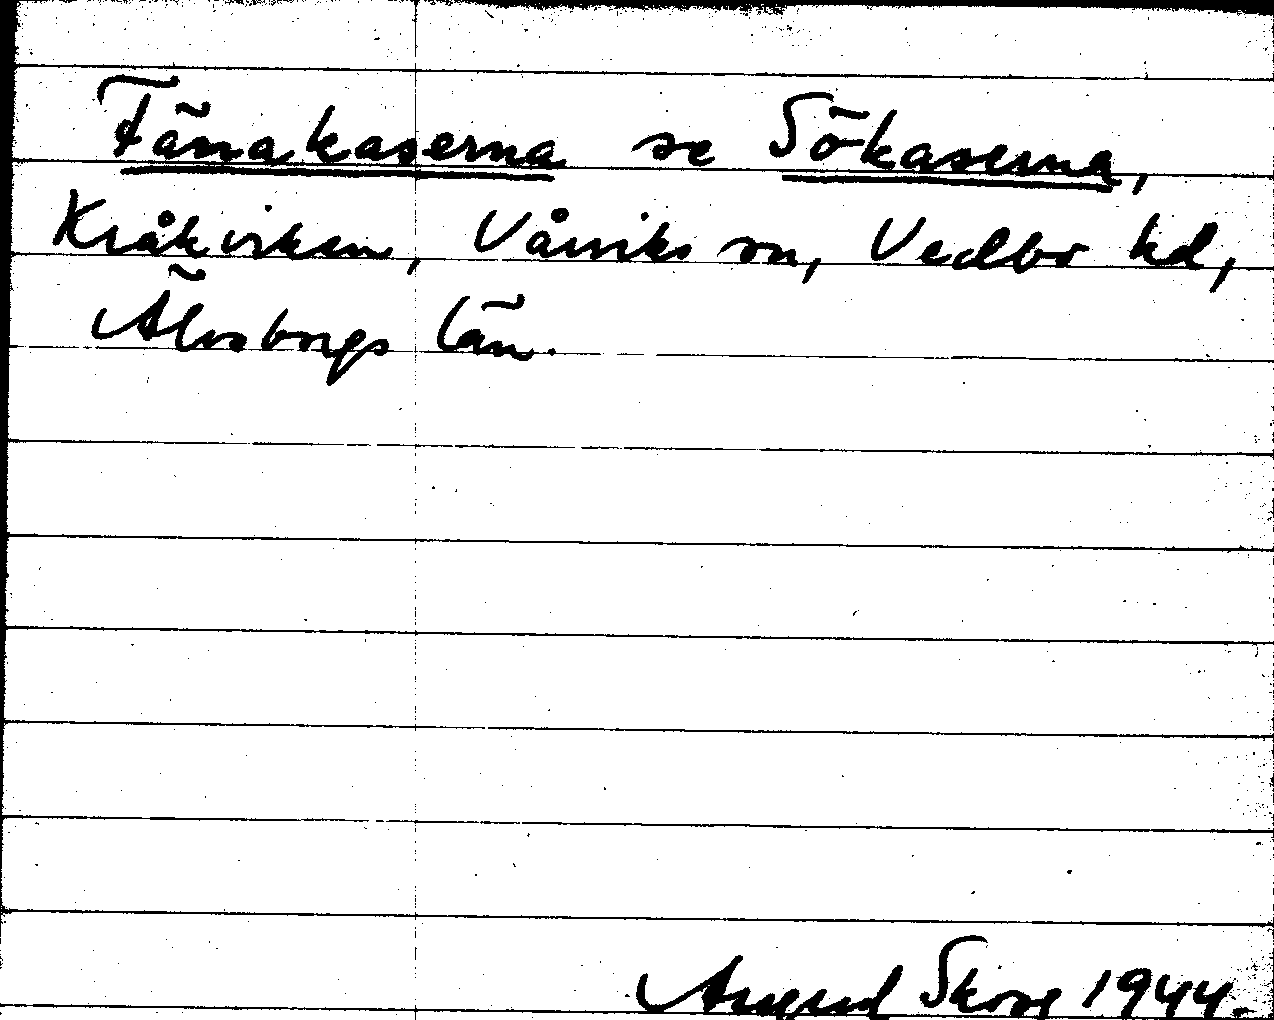 Fänakaserna se Sökaserna,
Kråkviken, Vårviks sn, Vedbo hd,
Älvsborgs län.
Assmund Skog 1944.